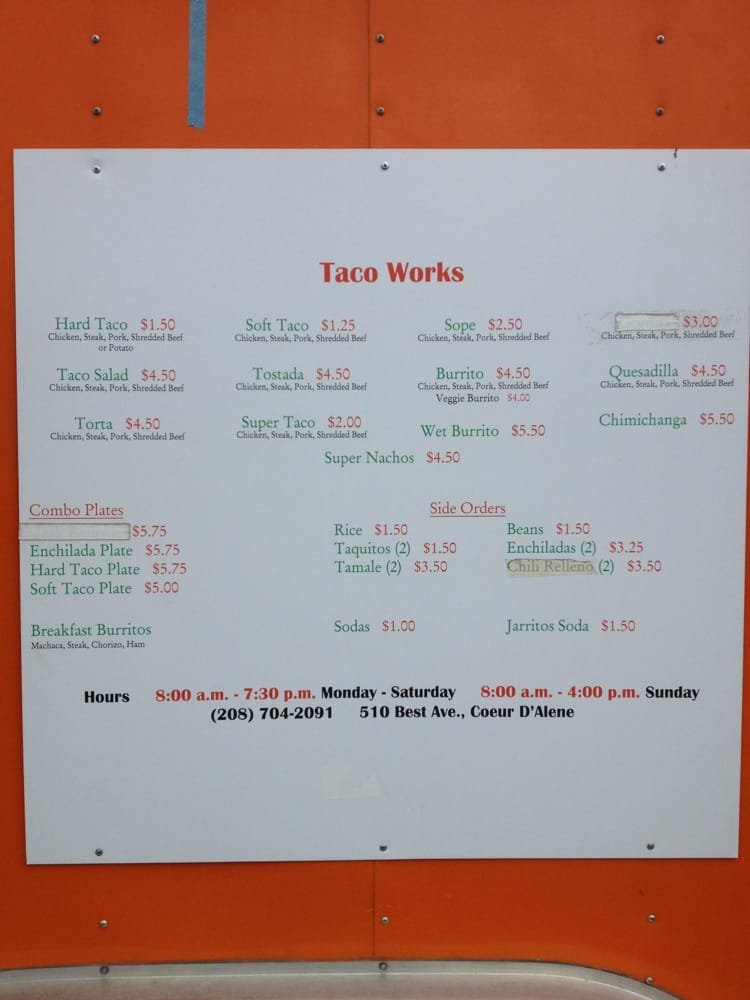 Taco Works
Hard Taco $1.50
Chicken, Steak, Pork, Shredded Beef
or Potato
Soft Taco $1.25
Chicken, Steak, Pork, Shredded Beef
Sope $2.50
Chicken, Steak, Pork, Shredded Beef
$3.00
Chicken, Steak, Pork, Shredded Beef
Taco Salad $4.50
Chicken, Steak, Pork, Shredded Beef
Tostada $4.50
Chicken, Steak, Pork, Shredded Beef
Burrito $4.50
Chicken, Steak, Pork, Shredded Beef
Veggie Burrito $4.00
Quesadilla $4.50
Chicken, Steak, Pork, Shredded Beef
Torta $4.50
Chicken, Steak, Pork, Shredded Beef
Super Taco $2.00
Chicken, Steak, Pork, Shredded Beef
Wet Burrito $5.50
Chimichanga $5.50
Super Nachos $4.50
Combo Plates
$5.75
Enchilada Plate $5.75
Hard Taco Plate $5.75
Soft Taco Plate $5.00
Side Orders
Rice $1.50
Taquitos (2) $1.50
Tamale (2) $3.50
Beans $1.50
Enchiladas (2) $3.25
Chili Relleno (2) $3.50
Breakfast Burritos
Machaca, Steak, Chorizo, Ham
Sodas $1.00
Jarritos Soda $1.50
Hours 8:00 a.m. - 7:30 p.m. Monday - Saturday 8:00 a.m. - 4:00 p.m. Sunday
(208) 704-2091 510 Best Ave., Coeur D'Alene